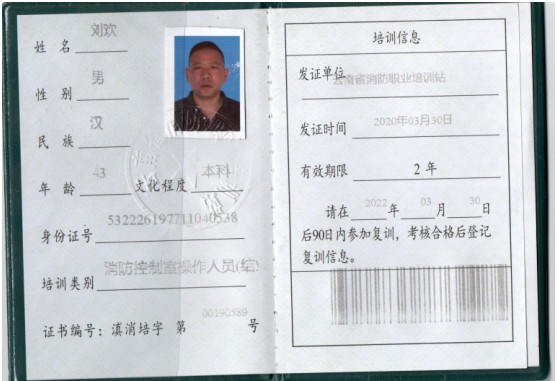 姓 名 刘欢
性 别 男
民 族 汉
年 龄 43 文化程度 本科
身份证号 532226197711040538
培训类别 消防控制室操作人员(结
证书编号：滇消培字 第 00190589 号
培训信息
发证单位 云南省消防职业培训站
发证时间 2020年03月30日
有效期限 2 年
请在 2022 年 03 月 30 日
后90日内参加复训，考核合格后登记
复训信息。